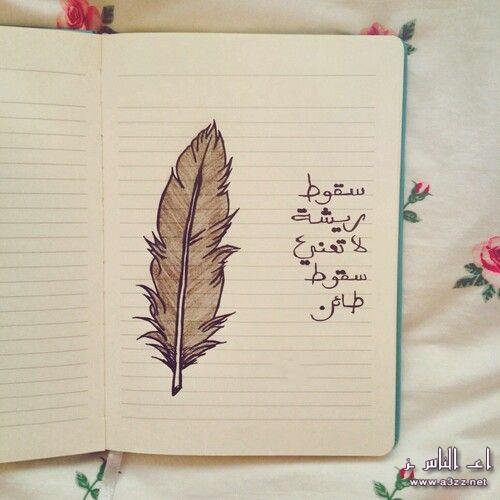 سقوط
ريشة
لا تعني
سقوط
طائر
اعز الناس
www.a3zz.net